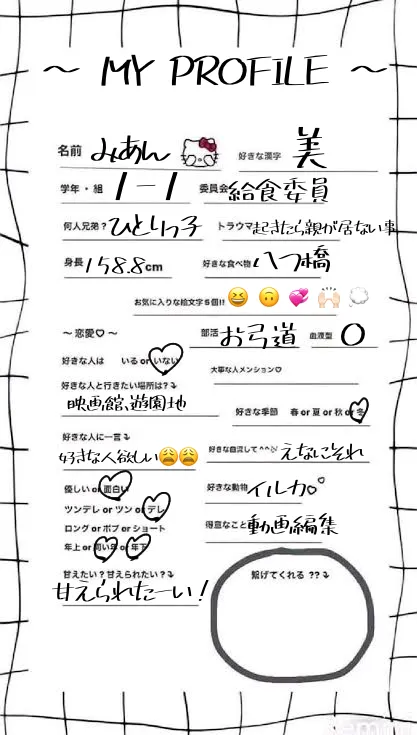 ～ MY PROFILE ～
名前 みあん 好きな漢字 美
学年・組 1-1 委員会 給食委員
何人兄弟? ひとりっ子 トラウマ 起きたら親が居ない事
身長 158.8cm 好きな食べ物 八つ橋
お気に入りな絵文字5個!! 😆 🙃 💞 🙌🏻 💭
～ 恋愛♡ ～ 部活 お弓道 血液型 O
好きな人は いる or いない 大事な人メンション♡
好きな人と行きたい場所は?⤵
映画館、遊園地 好きな季節 春 or 夏 or 秋 or 冬
好きな人に一言⤵
好きな人欲しい😩😩 好きな曲流して^^ えなにそれ
優しい or 面白い 好きな動物 イルカ♡♡
ツンデレ or ツン or デレ
ロング or ボブ or ショート 得意なこと 動画編集
年上 or 同い年 or 年下
甘えたい?甘えられたい?⤵ 繋げてくれる ??⤵
甘えられたーい!